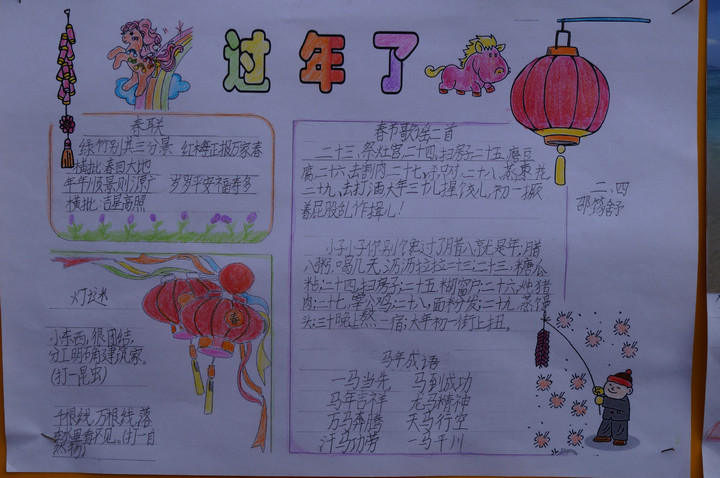 过年了
春联
绿竹别其三分景 红梅正报万家春
横批:春回大地
年年顺景则源广 岁岁平安福寿多
横批:吉星高照
春节歌谣二首
二十三,祭灶官,二十四,扫房子,二十五,磨豆
腐,二十六,去割肉,二十七,
二十九,去打油
着屁股乱作揖儿!
二、四
邵筠舒
小子小子你别 过了腊八就是年;腊
八粥,喝几天,沥沥拉拉二十三;二十三,糖瓜
粘;二十四,扫房子;二十五,糊窗户;二十六,炖猪
肉;二十七,宰公鸡;二十八,面粉发;二十九,蒸馒
头;三十晚上熬一宿;大年初一街上扭。
灯谜
小东西,很团结,
分工明确建筑家。
(打一昆虫)
千根线,万根线,落
(打一自
然物)
马年成语
一马当先 马到成功
马年吉祥 龙马精神
万马奔腾 天马行空
汗马功劳 一马平川